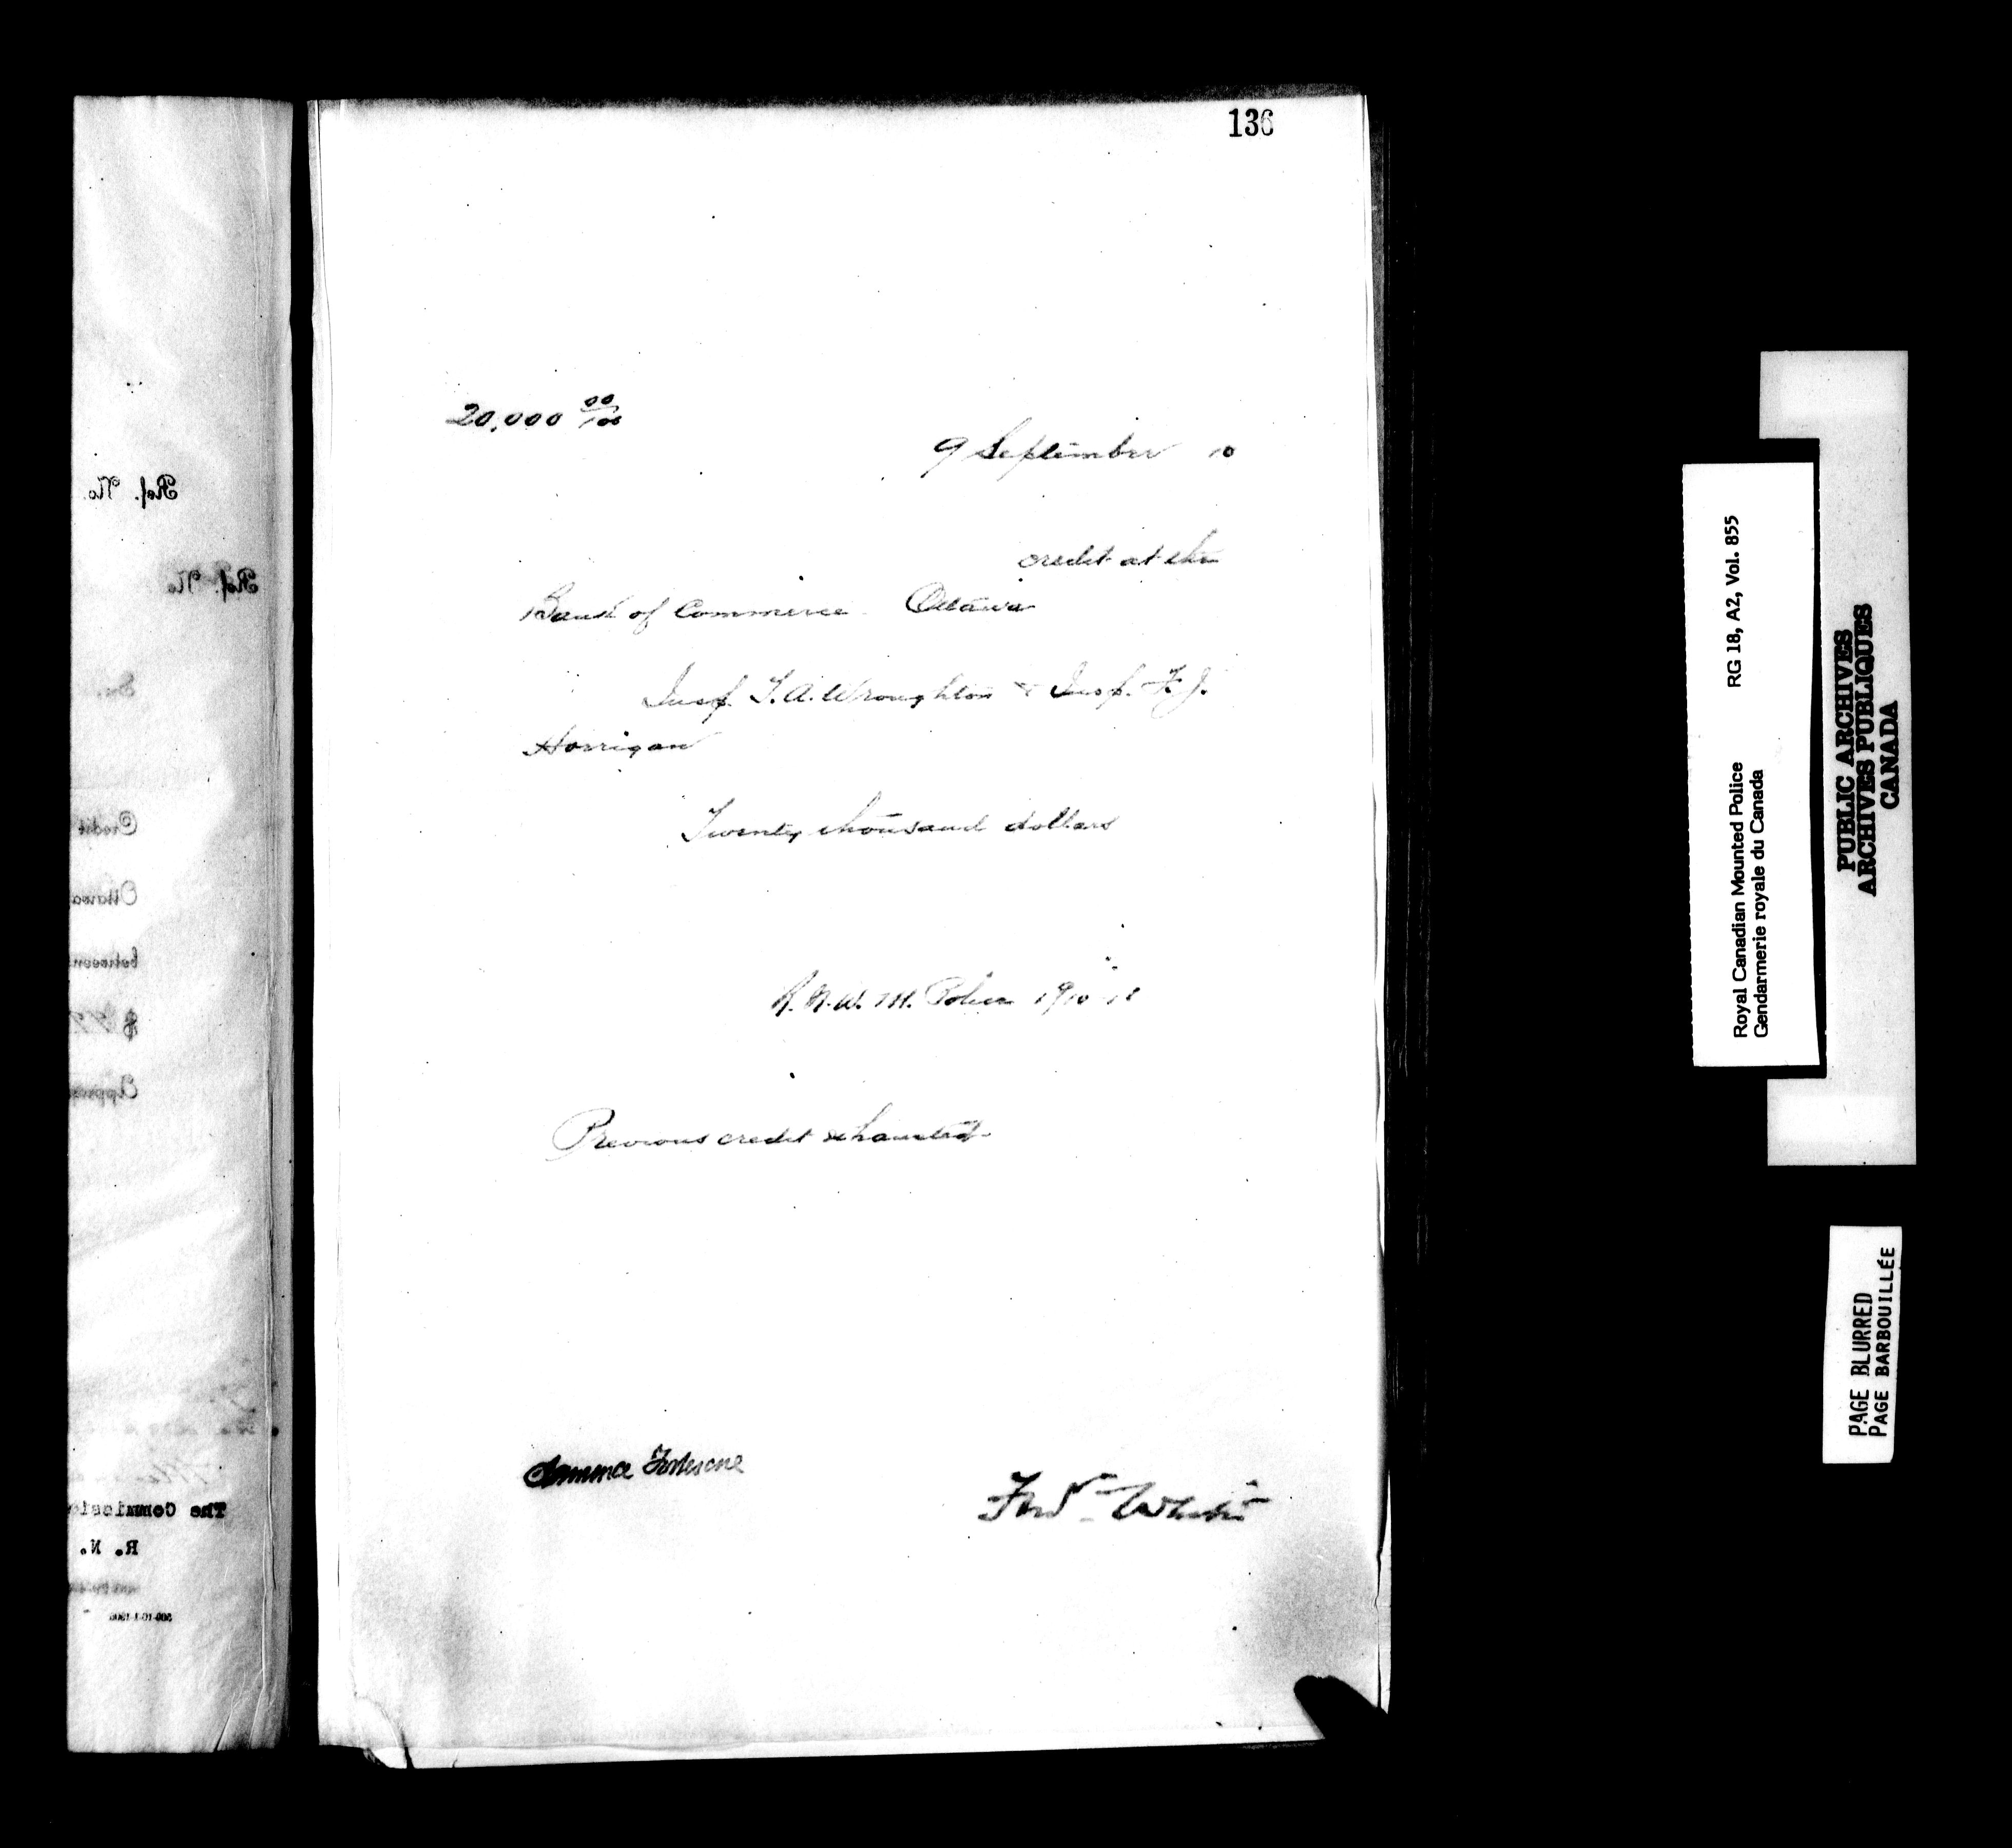 136
20,000 00/100
9 September 10
credit at the
Bank of Commerce Ottawa
Insp. T. A. Wroughton & Insp. F. J.
Horrigan
Twenty thousand dollars
R. N. W. M. Police 1910-11
Previous credit exhausted
Fortescue
Fred White
Ref. No.
Ref. No
Credit
Ottawa
between
$
The Commissio
R. N.
Royal Canadian Mounted Police RG 18, A2, Vol. 855
Gendarmerie royale du Canada
PUBLIC ARCHIVES
ARCHIVES PUBLIQUES
CANADA
PAGE BLURRED
PAGE BARBOUILLÉE